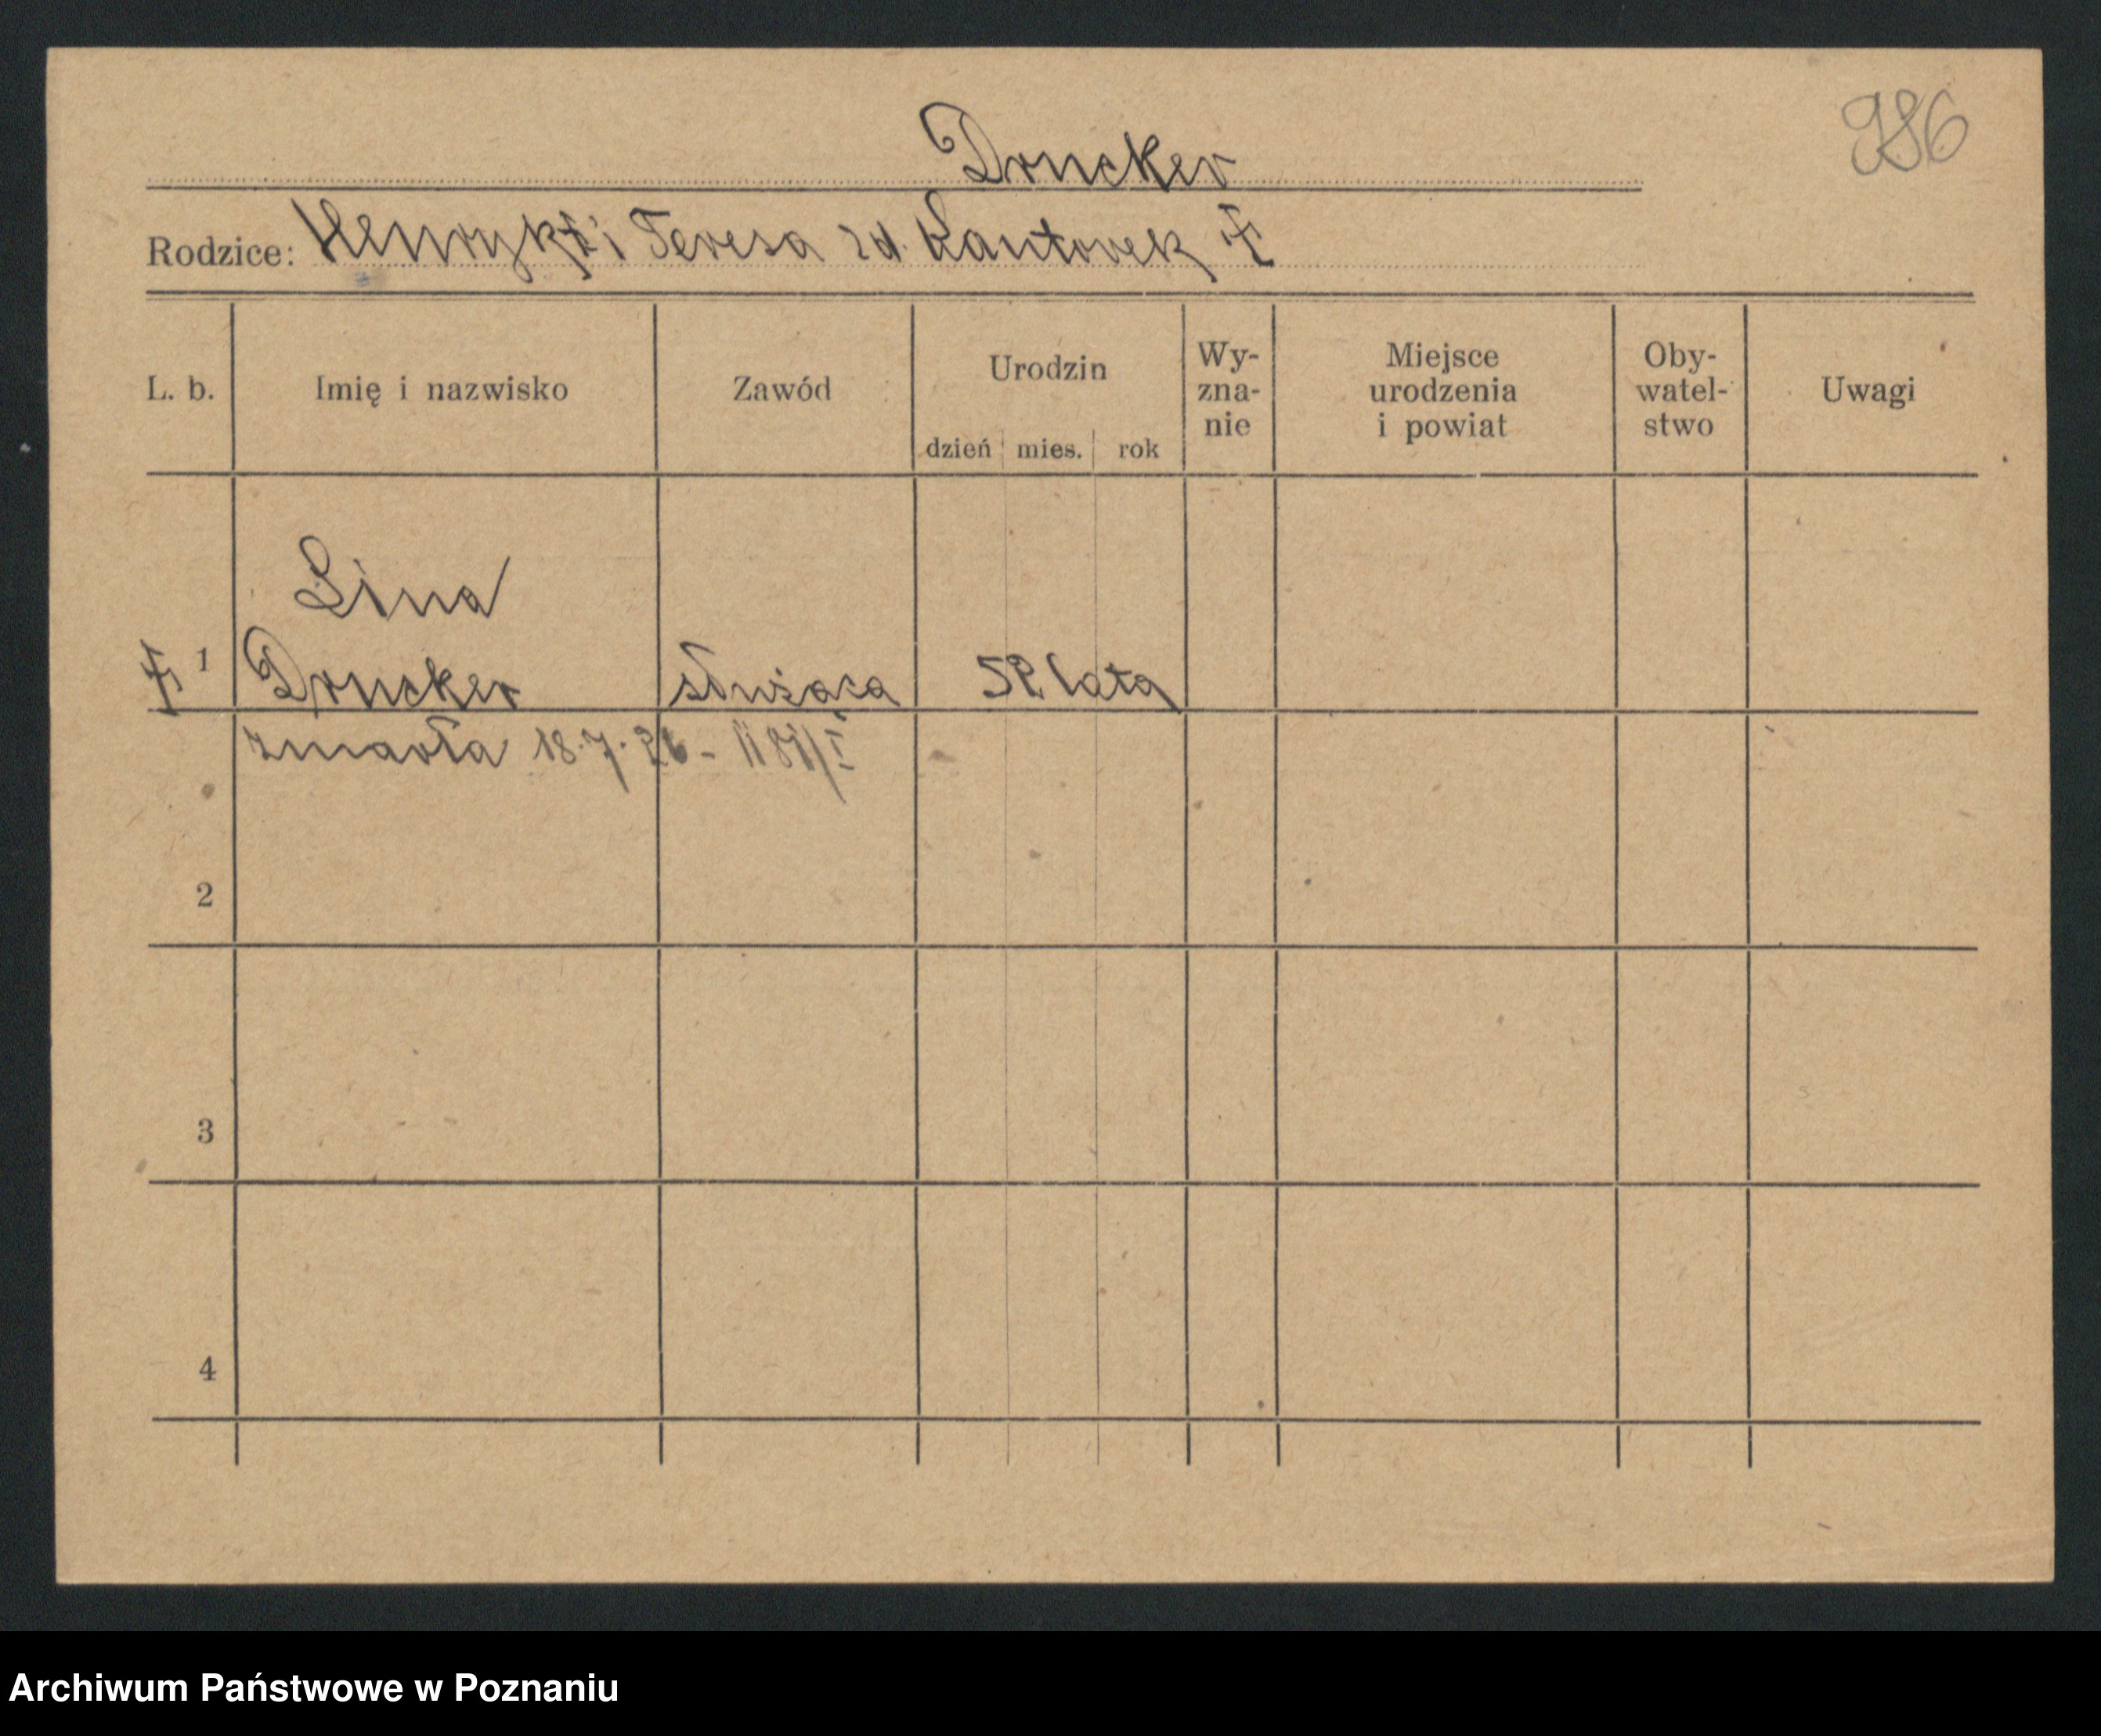 986
Drucker
Rodzice: Henryk † i Teresa zd. Kantorek †
L. b. Imię i nazwisko Zawód Urodzin dzień mies. rok Wy-zna-nie Miejsce urodzenia i powiat Oby-watel-stwo Uwagi
Lina
† 1 Drucker służąca 52 lata
zmarła 18.7.26 -
2
3
4
Archiwum Państwowe w Poznaniu